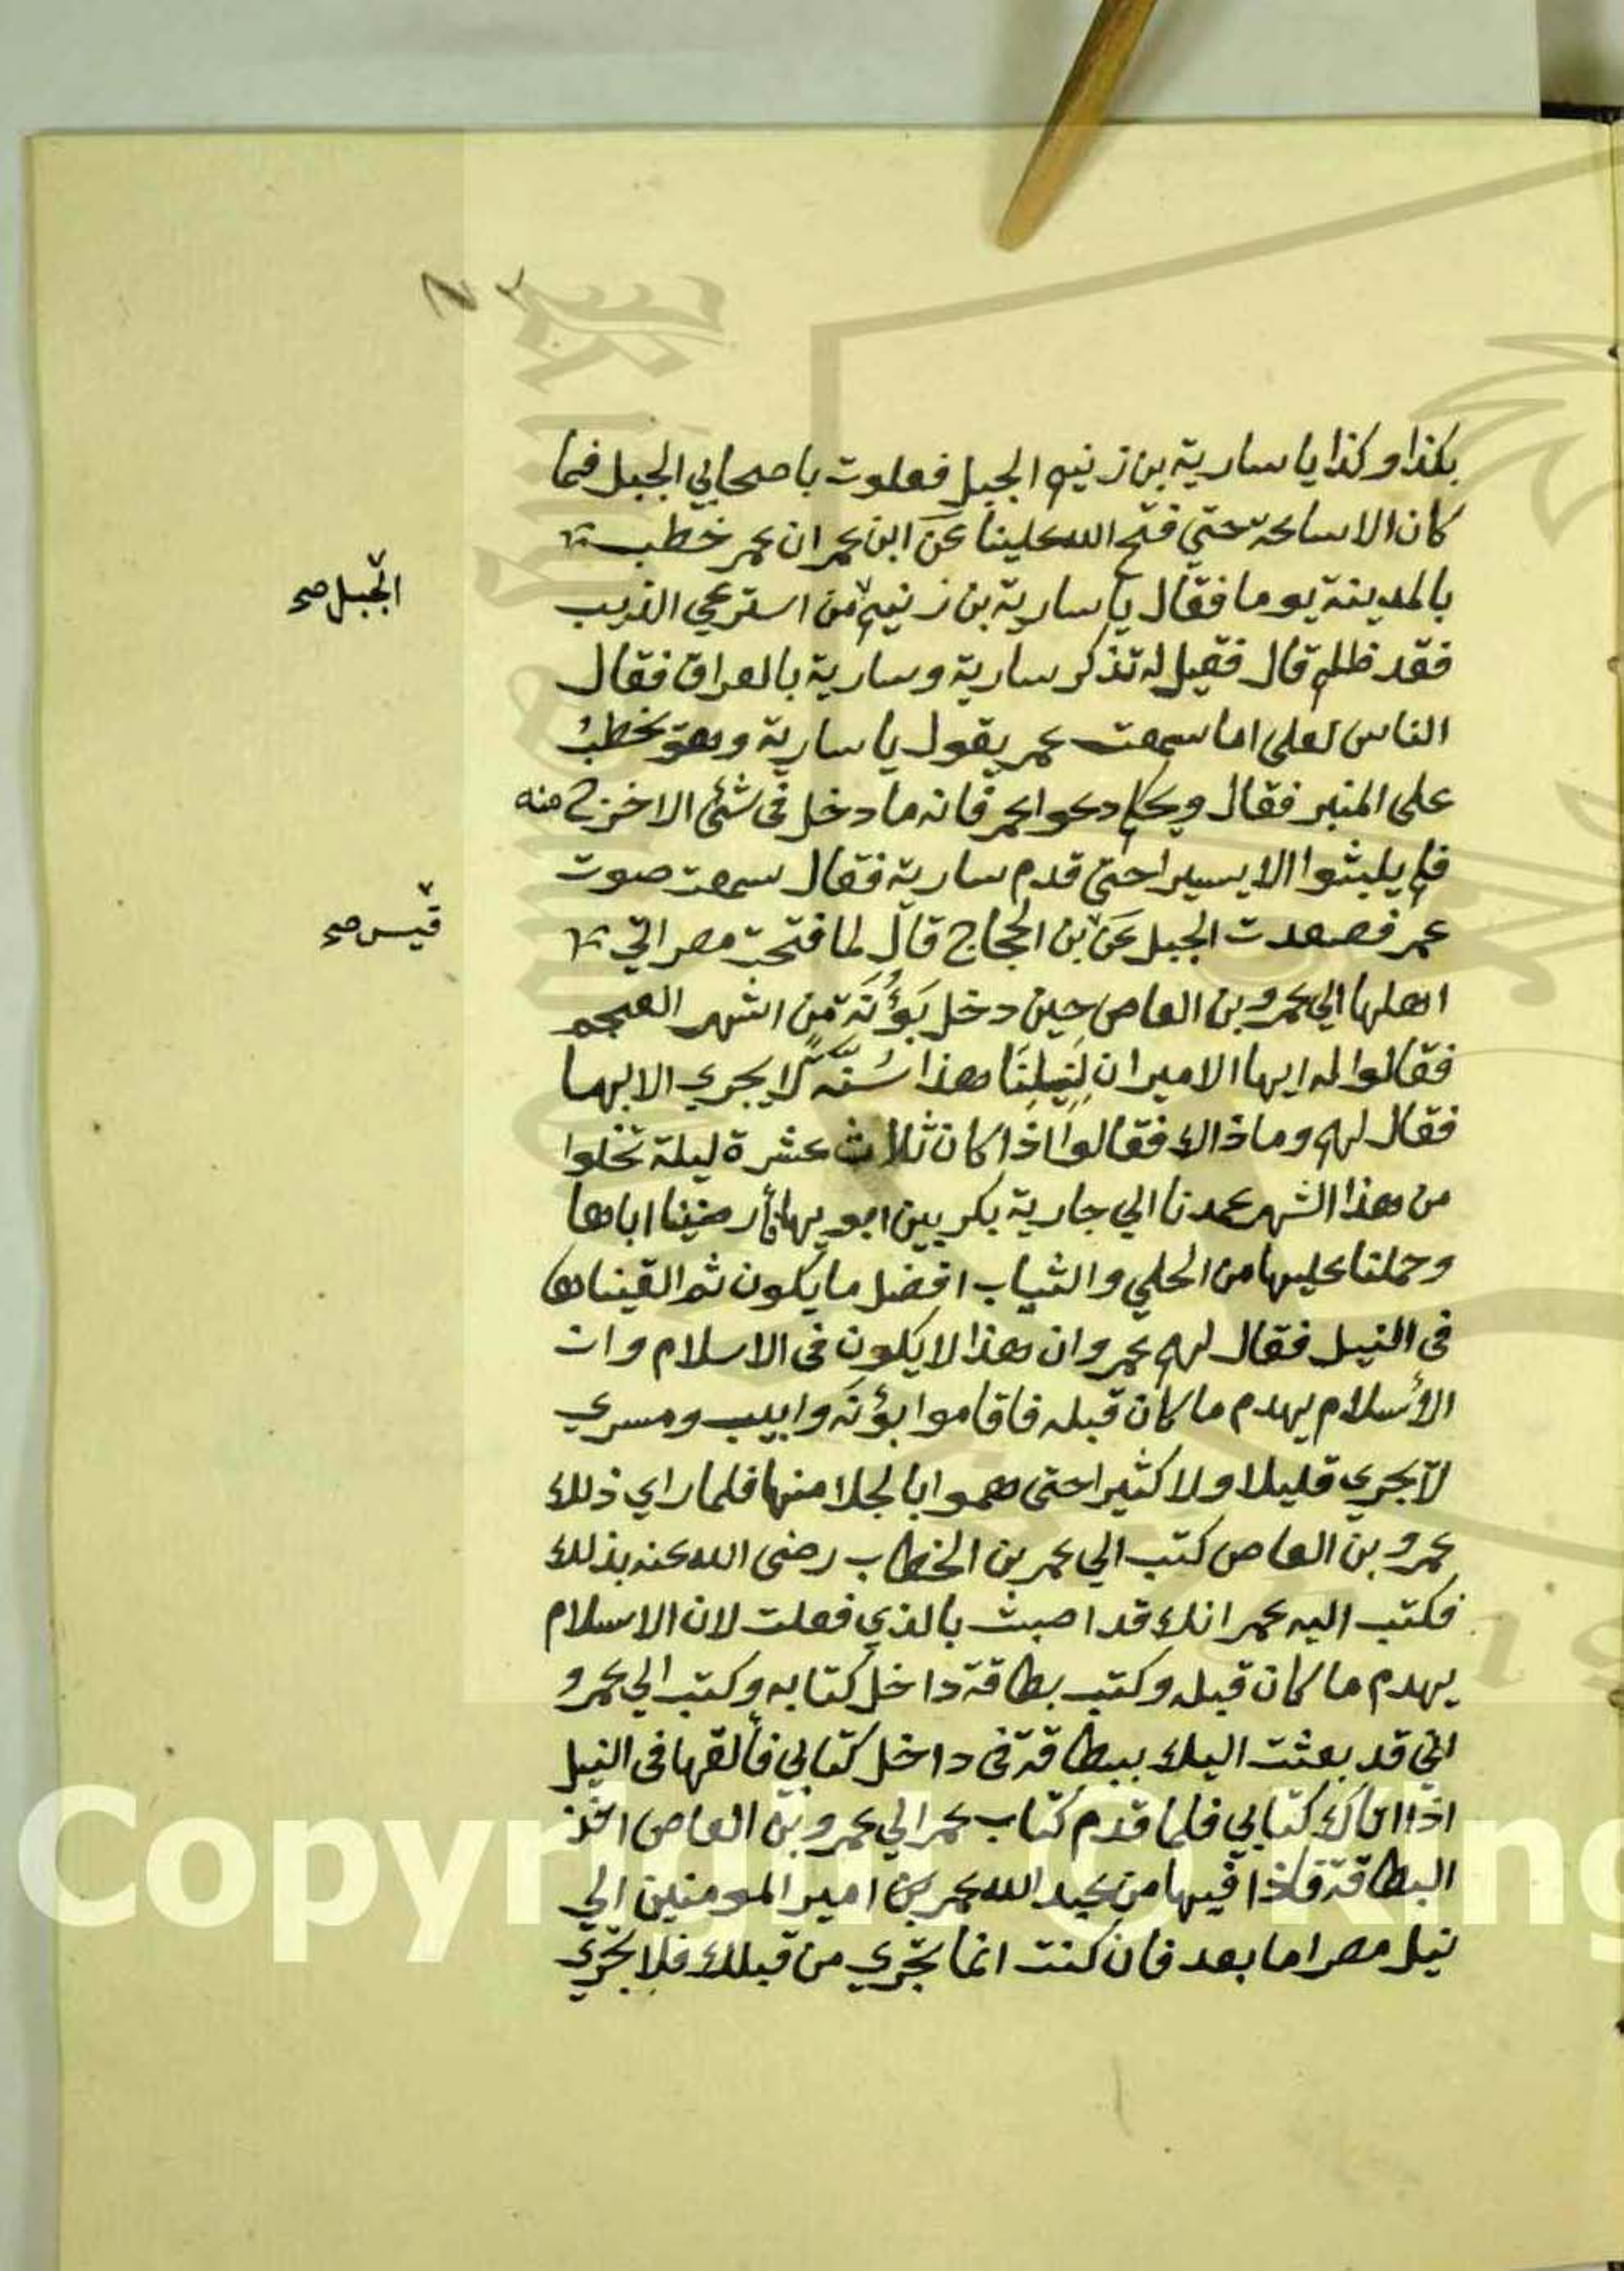 بكذا وكذا يا سارية بن زنيم الجبل فعلوت باصحابي الجبل فما
كان الا ساعة حتي فتح الله علينا عن ابن عمران عمر خطب
بالمدينة يوما فقال يا سارية بن زنيم من استرعي الذيب
الجبل صح
فقد ظلم قال فقيل له تذكر سارية وسارية بالعراق فقال
الناس لعلى اما سمعت عمر يقول يا سارية وهو يخطب
على المنبر فقال ويحكم دعوا عمر فانه ما دخل فى شئ الا خرج منه
فلم يلبثوا الا يسيرا حتى قدم سارية فقال سمعت صوت
عمر فصعدت الجبل عن بن الحجاج قال لما فتحت مصر اتي
قيس صح
اهلها الي عمرو بن العاص حين دخل بَؤُنَة من اشهر العجم
فقالوا له ايها الامير ان لِنِيلِنَا هذا سُنَّةً لا يجري الا بها
فقال لهم وما ذاك فقالوا اذا كان ثلاث عشرة ليلة تخلوا
من هذا الشهر عمدنا الي جارية بكر بين ابويها فأرضينا اباها
وحملنا عليها من الحلي والثياب افضل ما يكون ثم القيناها
فى النيل فقال لهم عمرو ان هذا لا يكون فى الاسلام وان
الأسلام يهدم ما كان قبله فاقاموا بؤنة وابيب ومسري
لا يجري قليلا ولا كثيرا حتى هموا بالجلا منها فلما راي ذلك
عمرو بن العاص كتب الي عمر بن الخطاب رضى الله عنه بذلك
فكتب اليه عمر انك قد اصبت بالذي فعلت لان الاسلام
يهدم ما كان قبله وكتب بطاقة داخل كتابه وكتب الي عمرو
اني قد بعثت اليك ببطاقة فى داخل كتابي فألقها فى النيل
اذا اتاك كتابي فلما قدم كتاب عمر الي عمرو بن العاص اخذ
البطاقة فاذا فيها من عبد الله عمر بن امير المومنين الي
نيل مصر اما بعد فان كنت انما تجري من قبلك فلا تجري